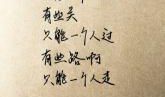 有些关
只能一个人过
有些路啊
只能一个人走